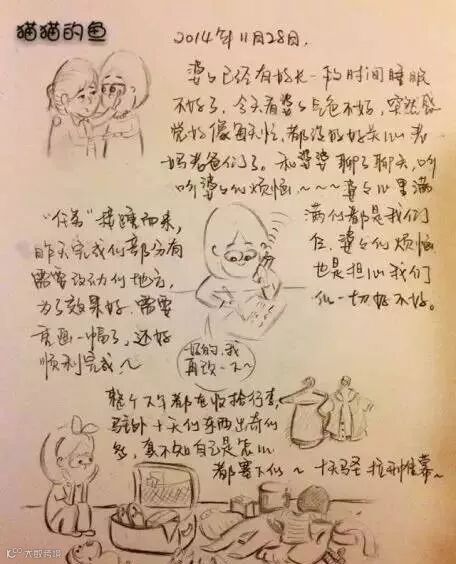 猫猫的鱼
2014年11月28日.
婆婆已经有好长一段时间睡眠
不好了，今天看婆婆气色不好，突然感
觉好像每天忙，都没好好关心老
妈老爸们了。和婆婆聊了聊天，听
听婆婆的烦恼～～～婆婆心里满
满的都是我们
婆婆的烦恼
也是担心我们
的一切好不好。
“任务”接踵而来，
昨天完成的部分有
需要改动的地方，
为了效果好，需要
重画一幅了，还好
顺利完成～
好的，我
再改一下～
整个下午都在收拾行李，
十天的东西出奇的
多，真不知自己是怎么
都要下的～十天
大数跨境